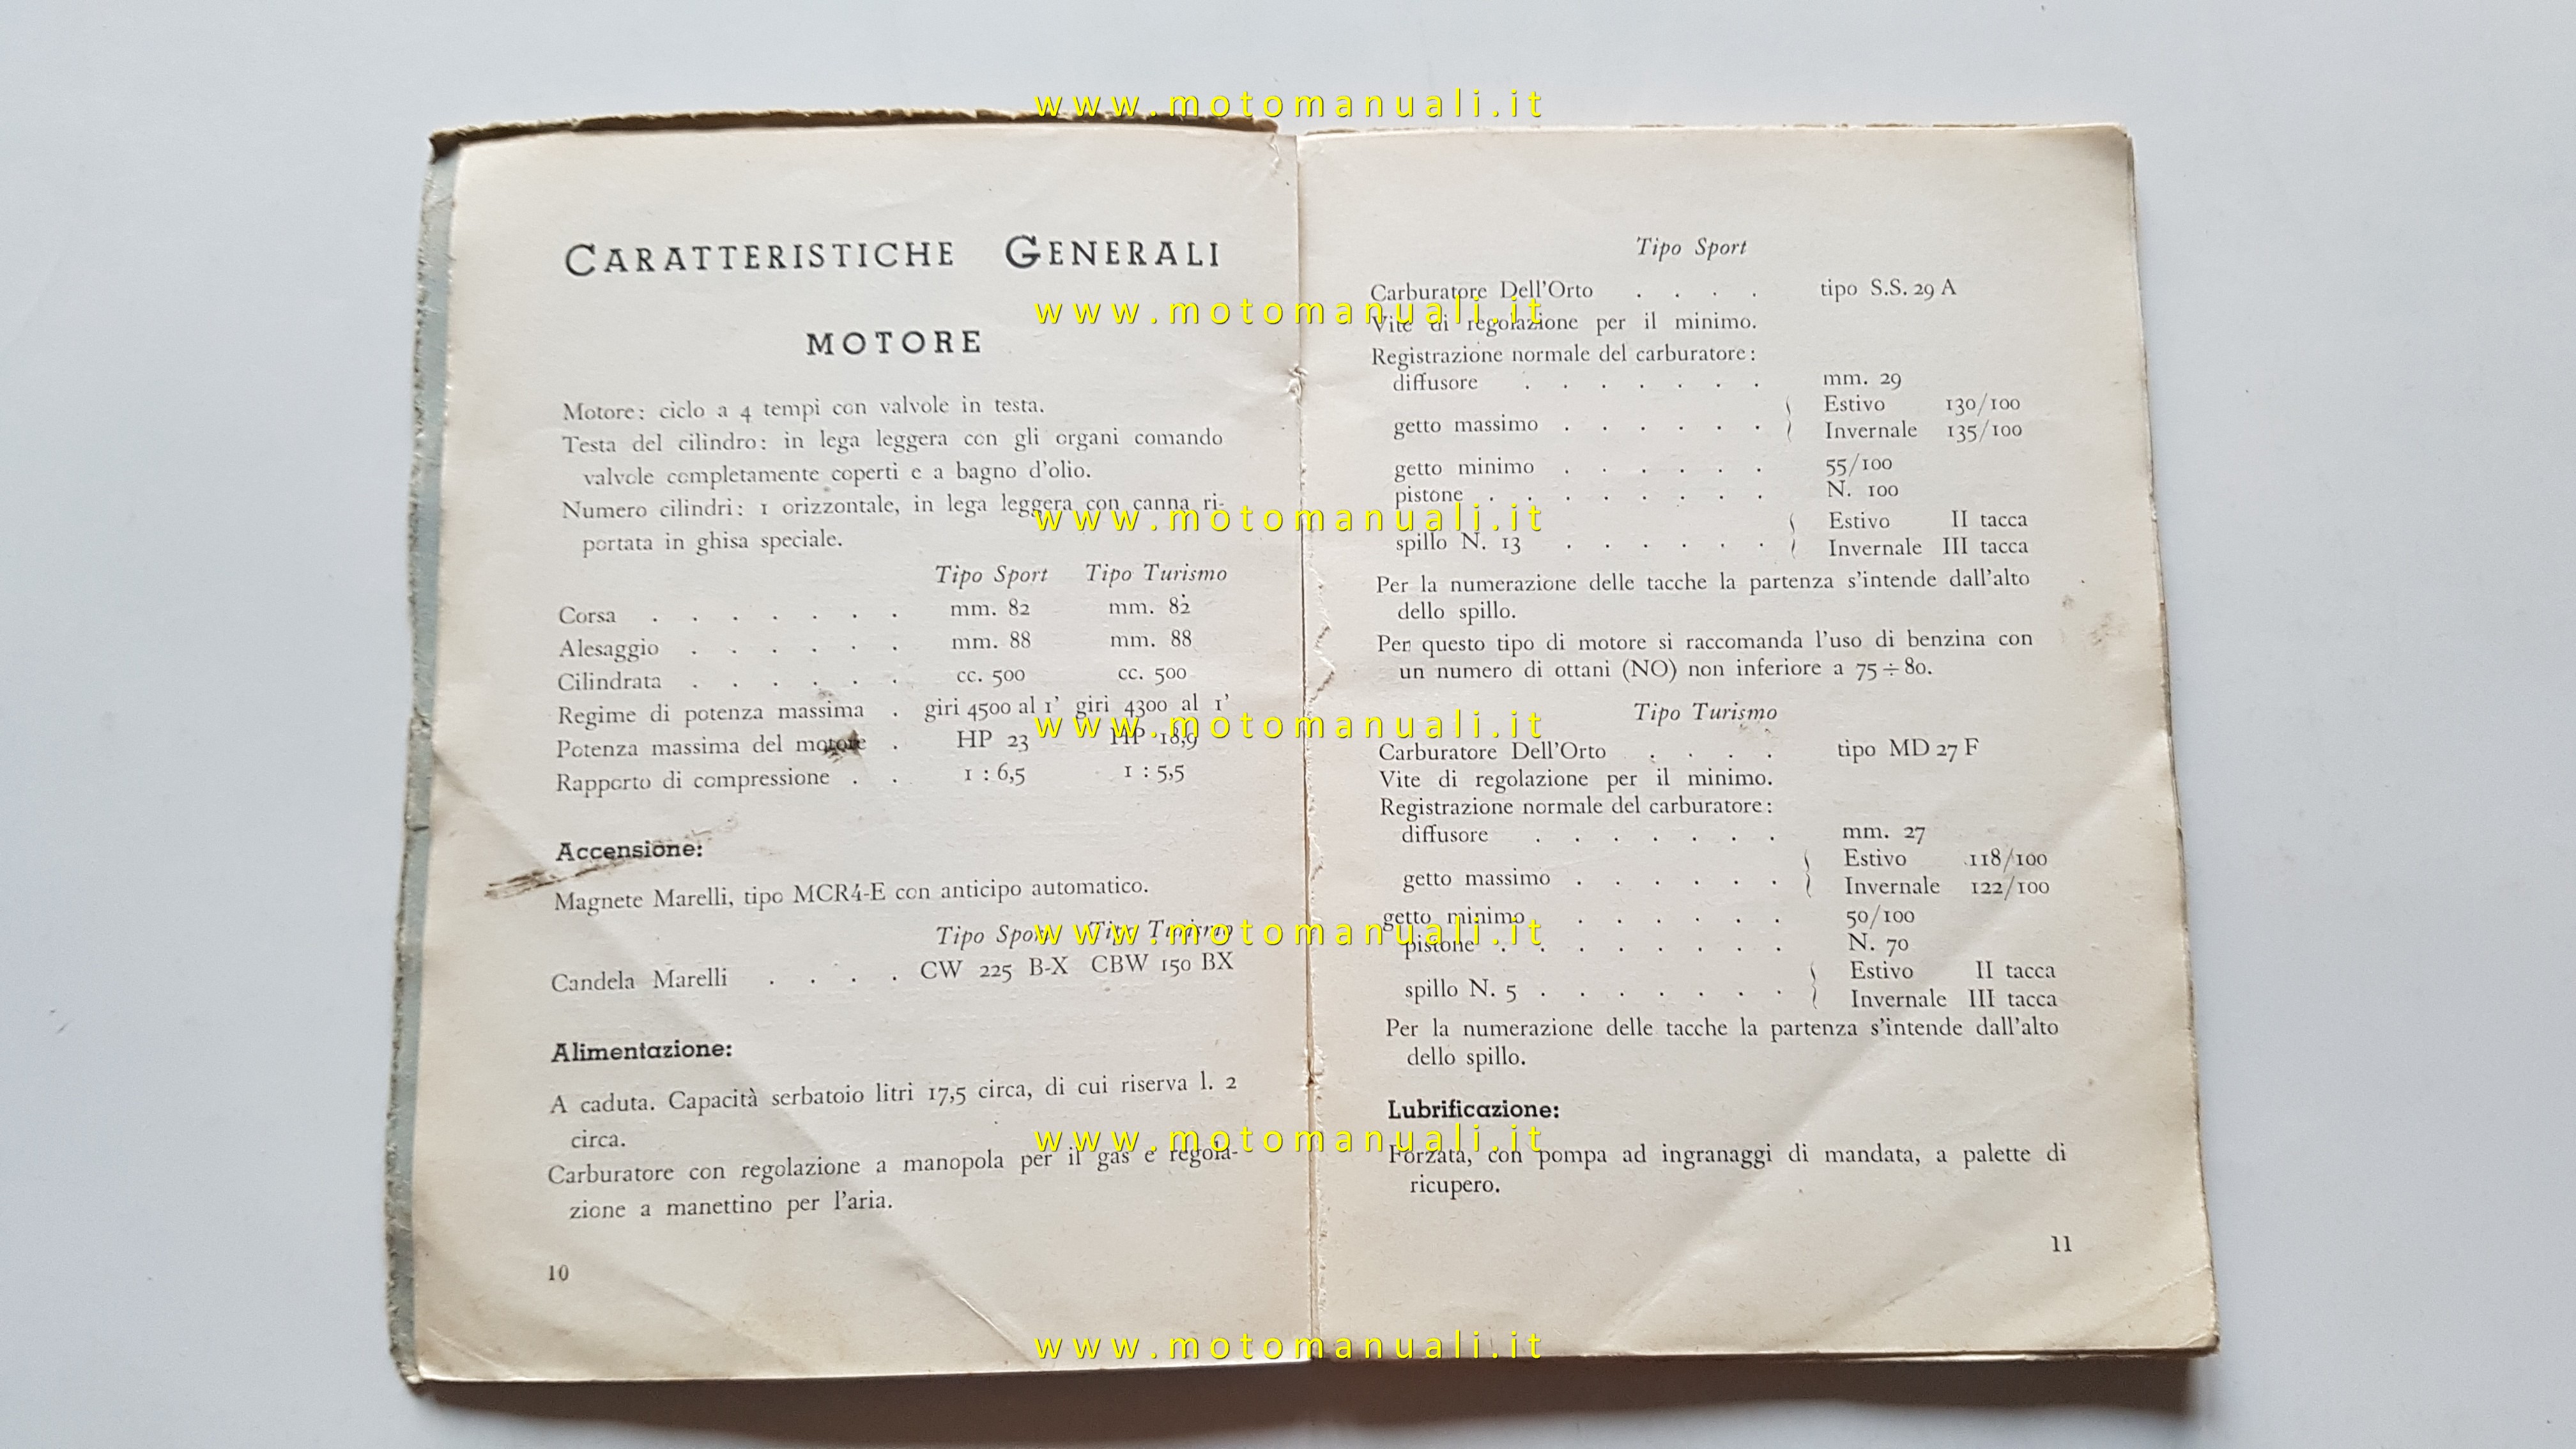 CARATTERISTICHE GENERALI
MOTORE
Motore: ciclo a 4 tempi con valvole in testa.
Testa del cilindro: in lega leggera con gli organi comando
valvole completamente coperti e a bagno d'olio.
Numero cilindri: 1 orizzontale, in lega leggera con canna ri-
portata in ghisa speciale.
Tipo Sport Tipo Turismo
Corsa . . . . . . . mm. 82 mm. 82
Alesaggio . . . . . . mm. 88 mm. 88
Cilindrata . . . . . . cc. 500 cc. 500
Regime di potenza massima . giri 4500 al 1' giri 4300 al 1'
Potenza massima del motore . HP 23 HP 18,9
Rapporto di compressione . . 1 : 6,5 1 : 5,5
Accensione:
Magnete Marelli, tipo MCR4-E con anticipo automatico.
Tipo Sport Tipo Turismo
Candela Marelli . . . . CW 225 B-X CBW 150 BX
Alimentazione:
A caduta. Capacità serbatoio litri 17,5 circa, di cui riserva l. 2
circa.
Carburatore con regolazione a manopola per il gas e regola-
zione a manettino per l'aria.
10
Tipo Sport
Carburatore Dell'Orto . . . . tipo S.S. 29 A
Vite di regolazione per il minimo.
Registrazione normale del carburatore:
diffusore . . . . . . . mm. 29
getto massimo . . . . . . { Estivo 130/100
Invernale 135/100
getto minimo . . . . . . 55/100
pistone . . . . . . . . N. 100
spillo N. 13 . . . . . . { Estivo II tacca
Invernale III tacca
Per la numerazione delle tacche la partenza s'intende dall'alto
dello spillo.
Per questo tipo di motore si raccomanda l'uso di benzina con
un numero di ottani (NO) non inferiore a 75 ÷ 80.
Tipo Turismo
Carburatore Dell'Orto . . . . tipo MD 27 F
Vite di regolazione per il minimo.
Registrazione normale del carburatore:
diffusore . . . . . . . mm. 27
getto massimo . . . . . . { Estivo 118/100
Invernale 122/100
getto minimo . . . . . . 50/100
pistone . . . . . . . . N. 70
spillo N. 5 . . . . . . . { Estivo II tacca
Invernale III tacca
Per la numerazione delle tacche la partenza s'intende dall'alto
dello spillo.
Lubrificazione:
Forzata, con pompa ad ingranaggi di mandata, a palette di
ricupero.
11
www.motomanuali.it
www.motomanuali.it
www.motomanuali.it
www.motomanuali.it
www.motomanuali.it
www.motomanuali.it
www.motomanuali.it